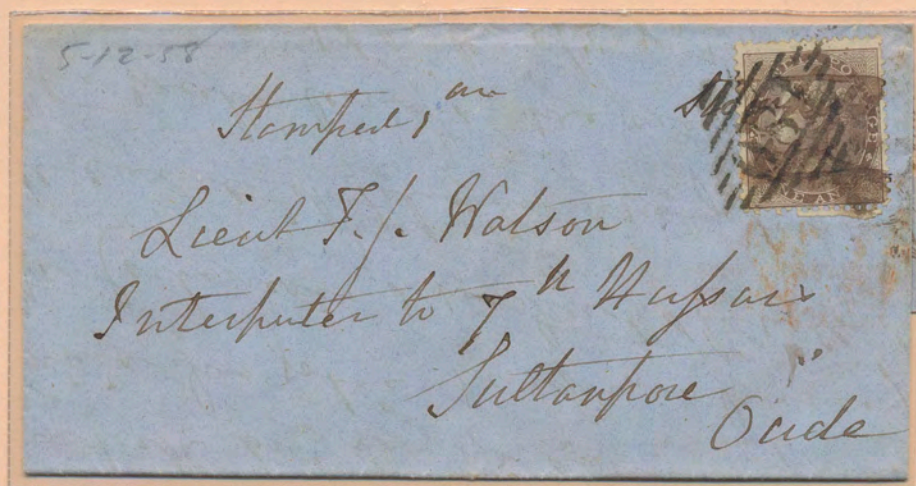 5-12-58
Stamped, an
Lieut F. J. Watson
Interpreter to 7th Hussars
Sultanpore
Oude